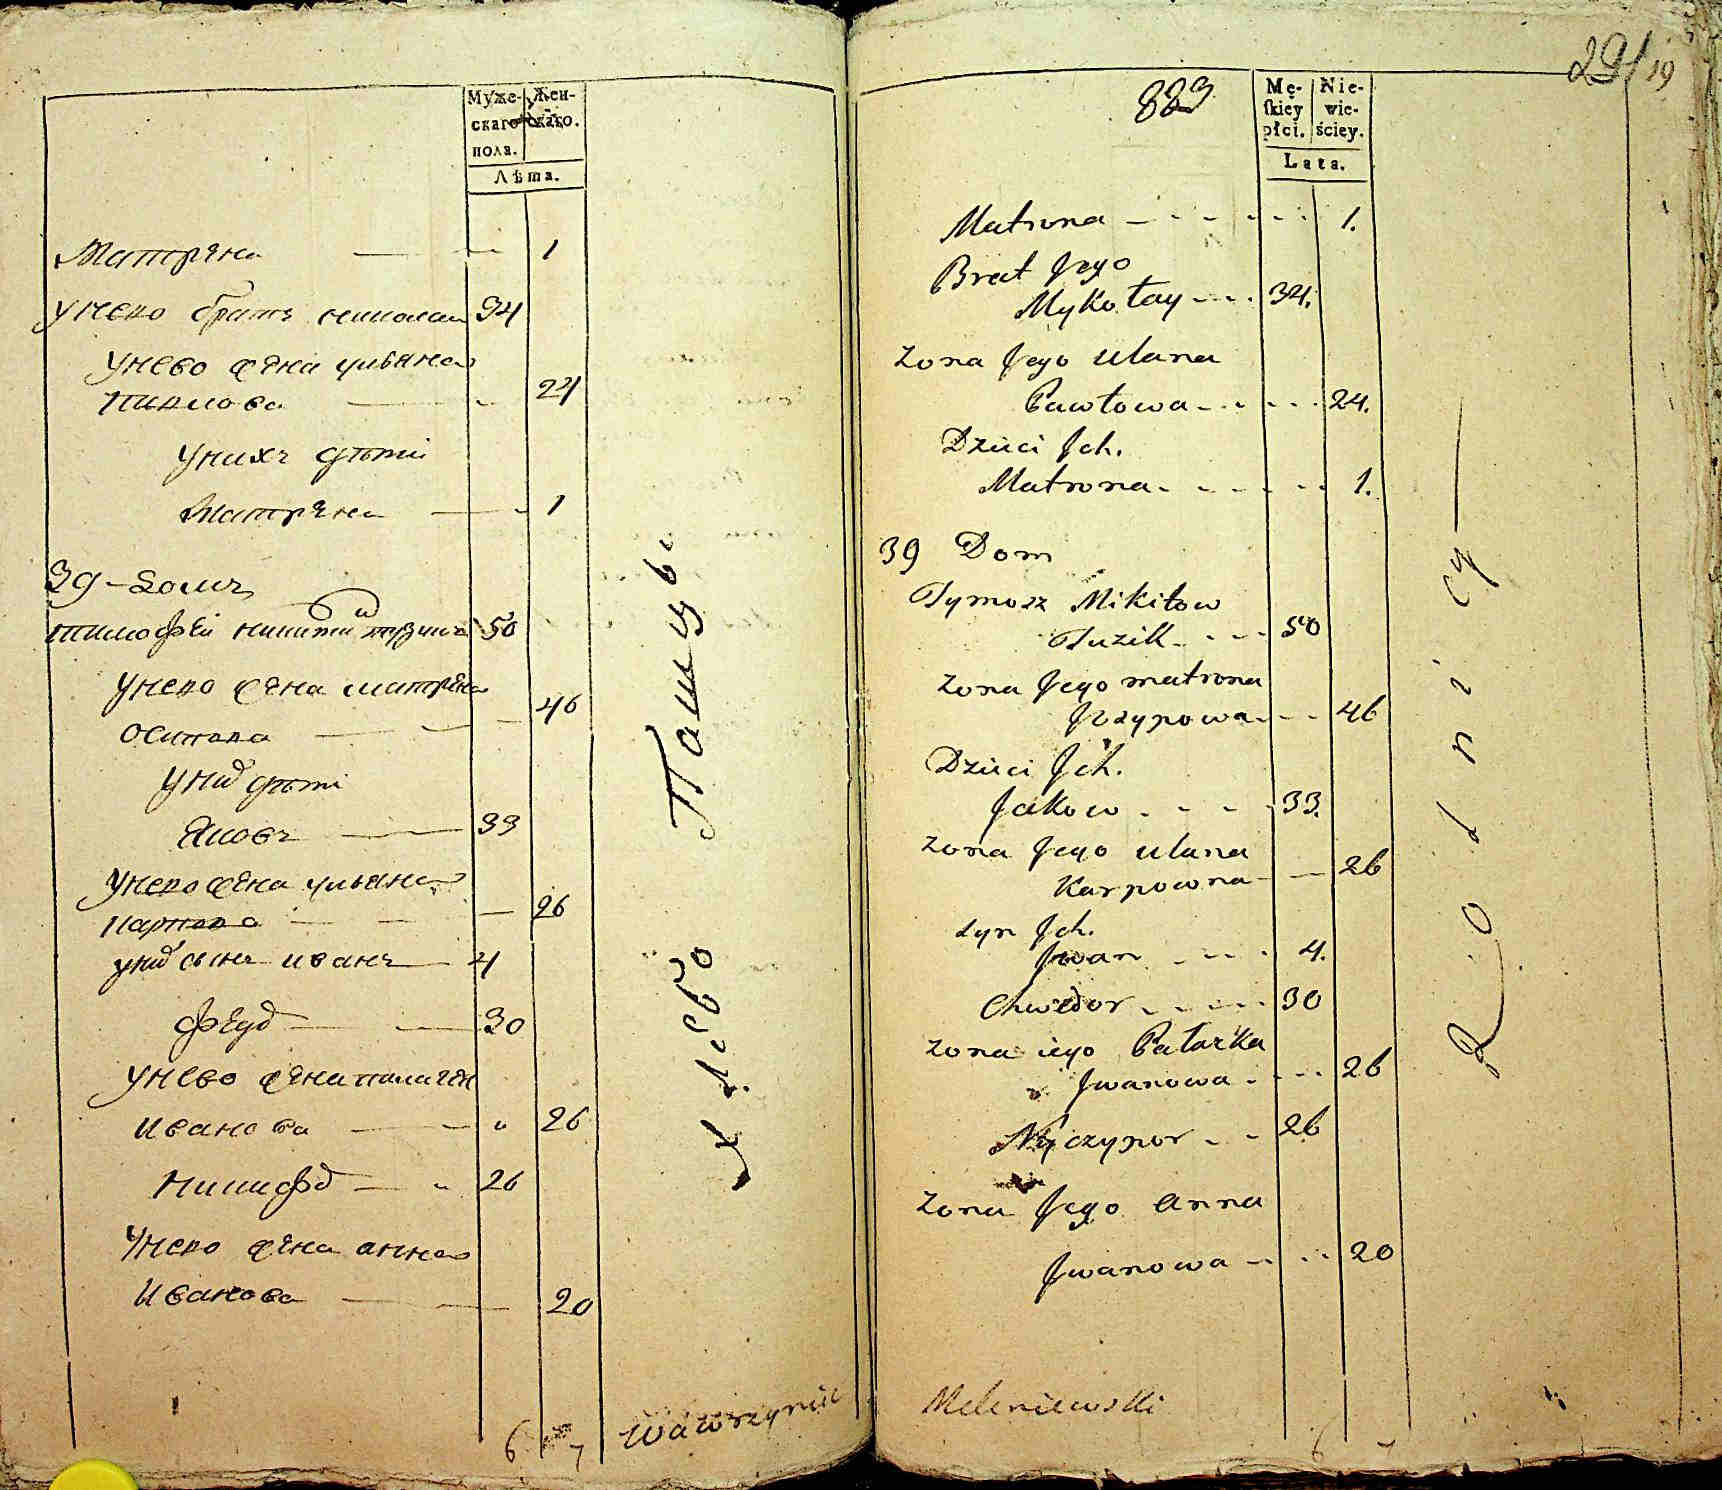 Муже-
скаго
пола.
Жен-
скаго.
Лѣта.
Матрена — — 1
У него братъ николаи 34
У нево жена ульяна
павлова — - 24
У нихъ дѣти
Матрена — - 1
39 - домъ
тимофеи никитинъ тузикъ 50
У нево жена матрена
осипова — — 46
У них дѣти
Яковъ — — 33
У нево жена ульяна
карпова — — — 26
у них сынъ иванъ — 4
Федор — — 30
У нево жена палагея
Иванова — — 26
Никифор — 26
У нево жена анна
Иванова — — 20
6 7
хлѣбо Пашцы
Wawrzyniec
291
19
883
Mę-
skiey
płci.
Nie-
wie-
ściey.
Lata.
Matrona - - - - - 1.
Brat Jego
Mykołay - - - 34.
Zona Jego Ulana
Pawłowa - - - - - 24.
Dzieci Jch.
Matrona - - - - - - 1.
39 Dom
Tymosz Mikitow
Tuzik - - - 50
Zona Jego matrona
Jozypowa - - - 46
Dzieci Jch.
Jakow - - - - 33.
Zona Jego Ulana
Karpowna - — 26
Syn Jch.
Jwan - - - - 4.
Chwedor - - - - - 30
Zona iego Pałażka
Jwanowa - - - - 26
Nyczypor - - 26
Zona Jego Anna
Jwanowa - - - - 20
Rolnicy —
Meleniewski
6 7